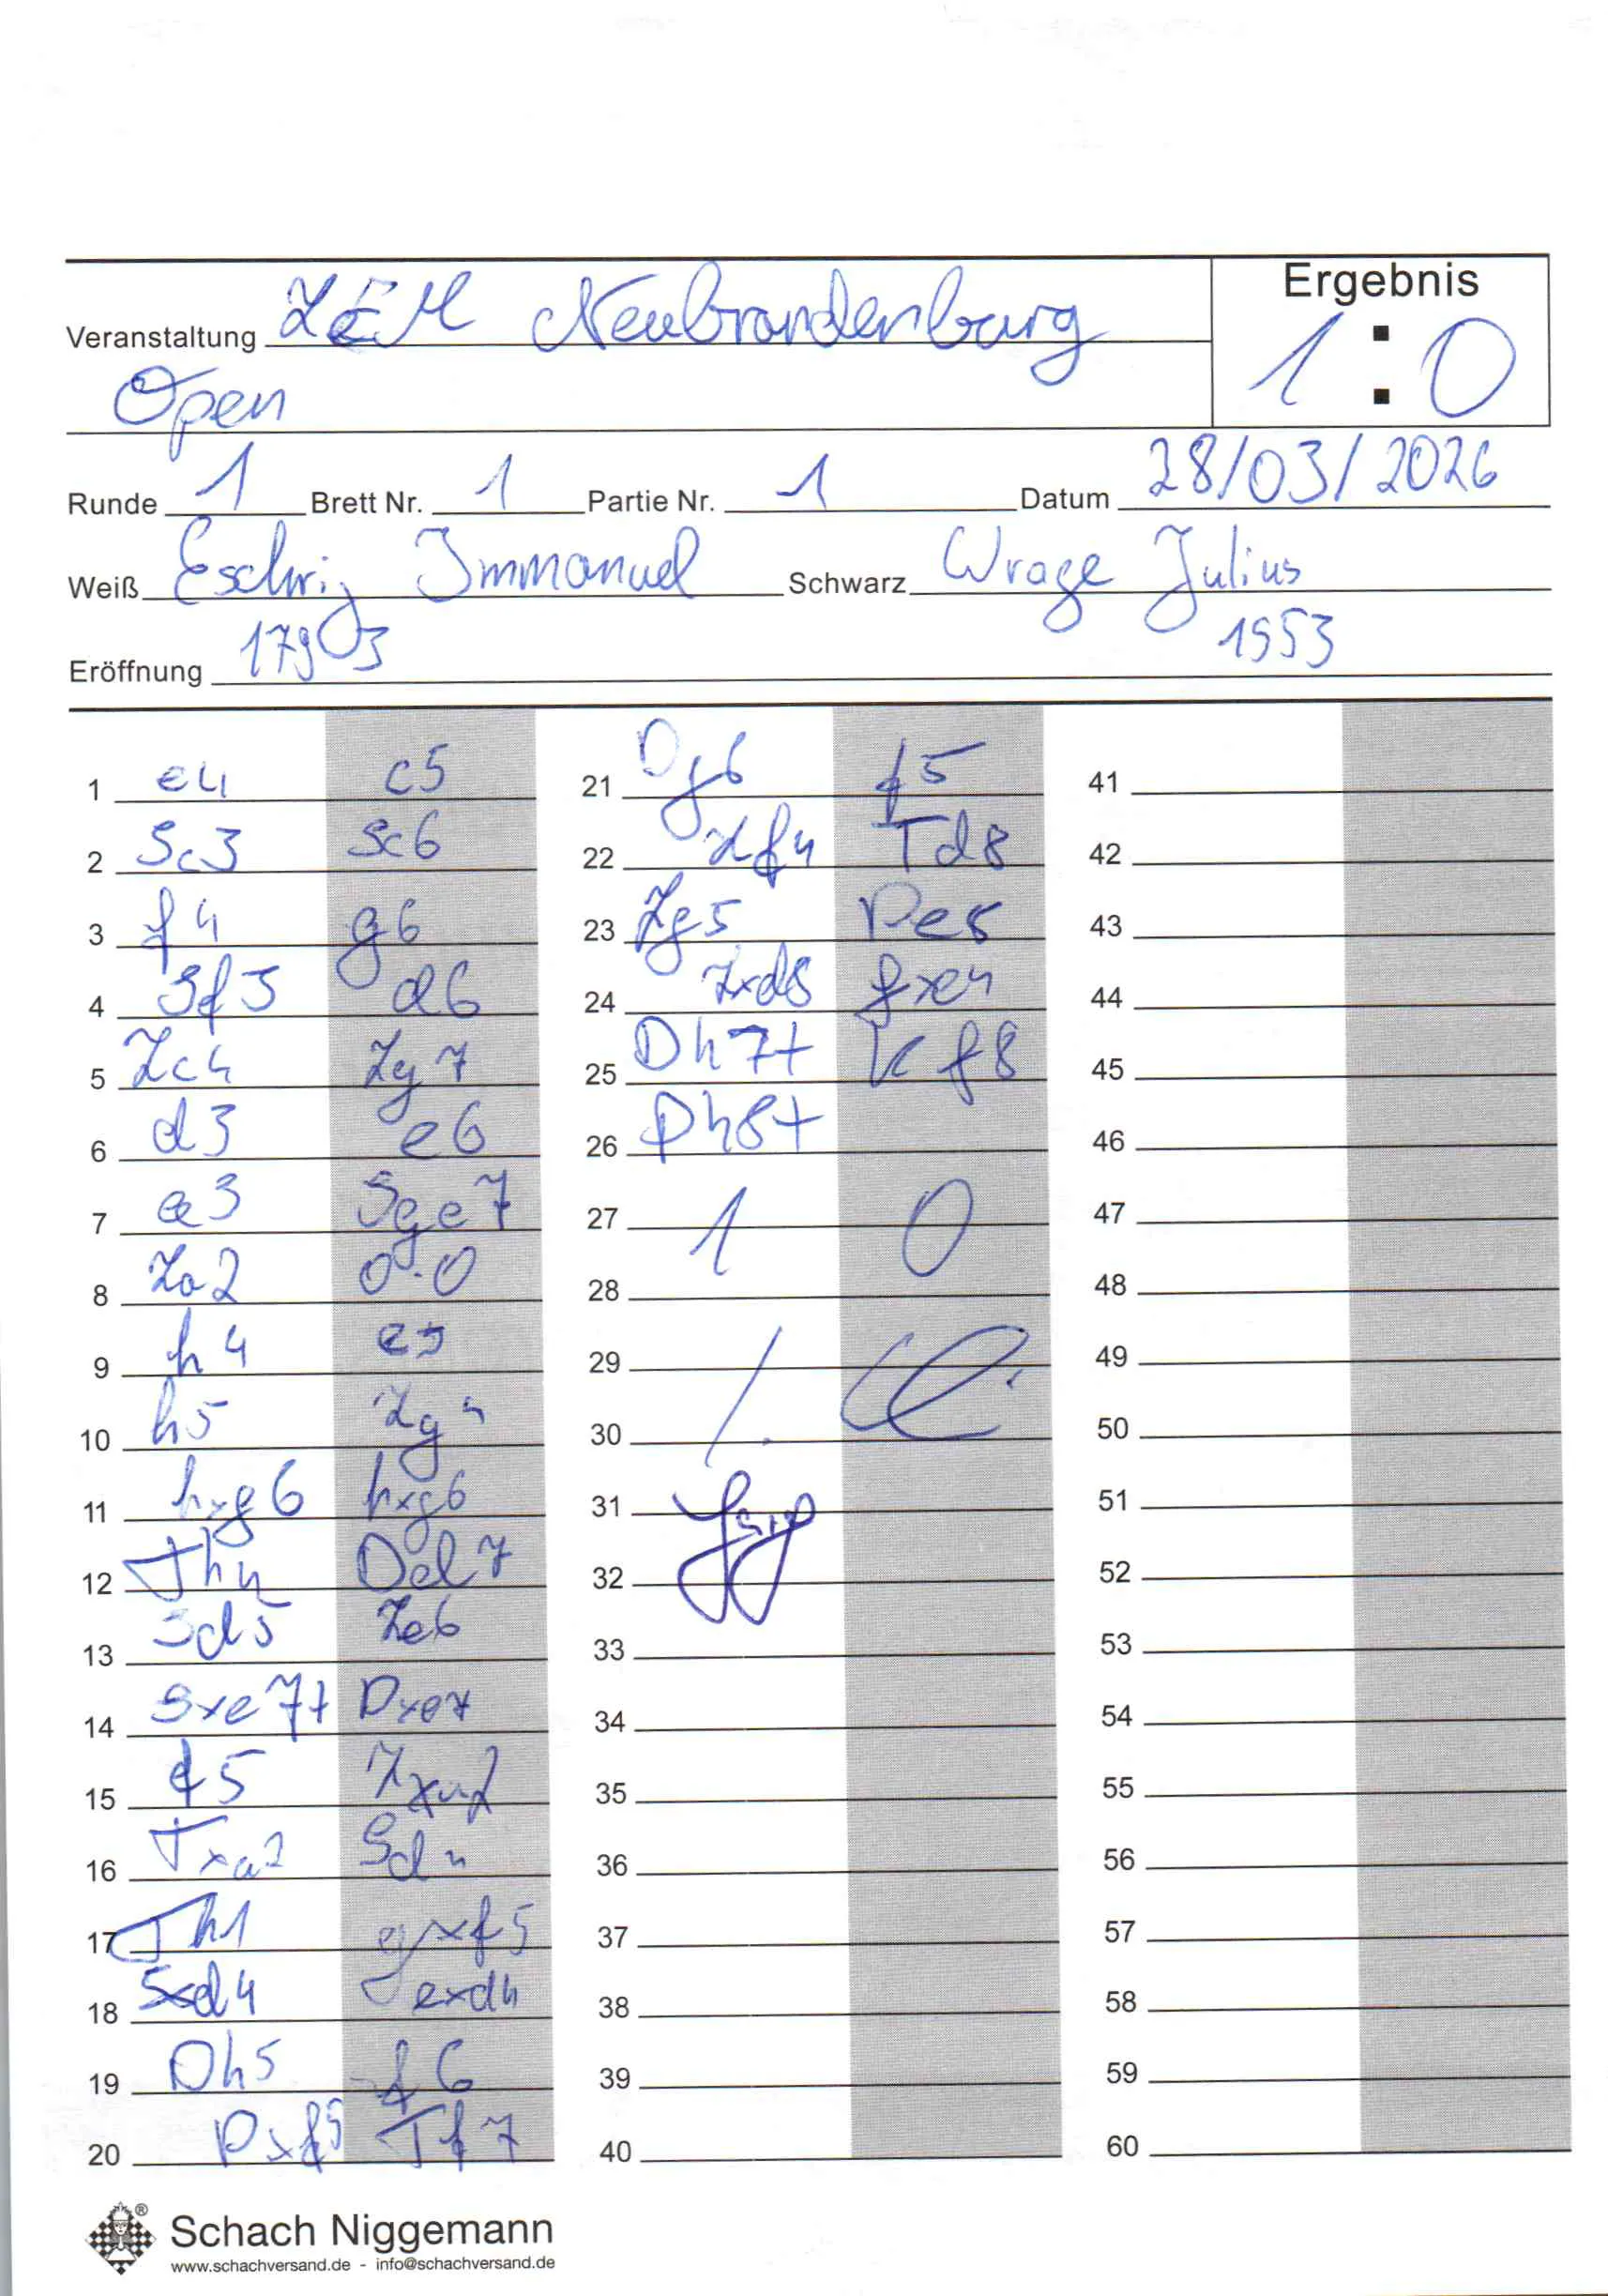 Ergebnis
Veranstaltung LEM Neubrandenburg
1 : 0
Open
Runde 1 Brett Nr. 1 Partie Nr. 1 Datum 28/03/2026
Weiß Eschrig Immanuel Schwarz Wrage Julius
1793 1953
Eröffnung
1 e4 c5
2 Sc3 Sc6
3 f4 g6
4 Sf3 d6
5 Lc4 Lg7
6 d3 e6
7 a3 Sge7
8 La2 0-0
9 h4 e5
10 h5 Lg4
11 hxg6 hxg6
12 Th4 Dd7
13 Sd5 Le6
14 Sxe7+ Dxe7
15 f5 Lxa2
16 Txa2 Sd4
17 Th1 gxf5
18 Sxd4 exd4
19 Dh5 f6
20 Dxf5 Tf7
21 Dg6 f5
22 Lf4 Td8
23 Lg5 De5
24 Lxd8 fxe4
25 Dh7+ Kf8
26 Dh8+
27 1 0
28
29
30
31
32
33
34
35
36
37
38
39
40
41
42
43
44
45
46
47
48
49
50
51
52
53
54
55
56
57
58
59
60
Schach Niggemann
www.schachversand.de - info@schachversand.de